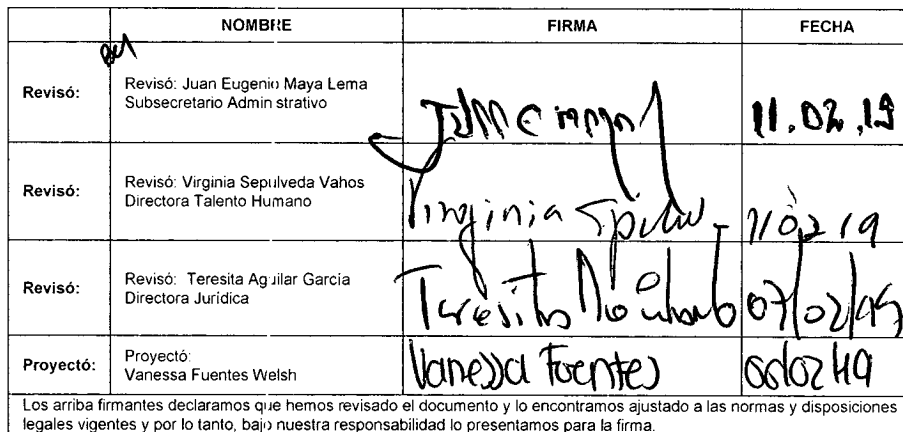 NOMBRE FIRMA FECHA
Revisó: Revisó: Juan Eugenio Maya Lema
Subsecretario Administrativo
11.02.19
Revisó: Revisó: Virginia Sepulveda Vahos
Directora Talento Humano
Virginia
110219
Revisó: Revisó: Teresita Aguilar García
Directora Jurídica
Teresita
07/02/19
Proyectó: Proyectó:
Vanessa Fuentes Welsh
Vanessa Fuentes
Los arriba firmantes declaramos que hemos revisado el documento y lo encontramos ajustado a las normas y disposiciones
legales vigentes y por lo tanto, bajo nuestra responsabilidad lo presentamos para la firma.